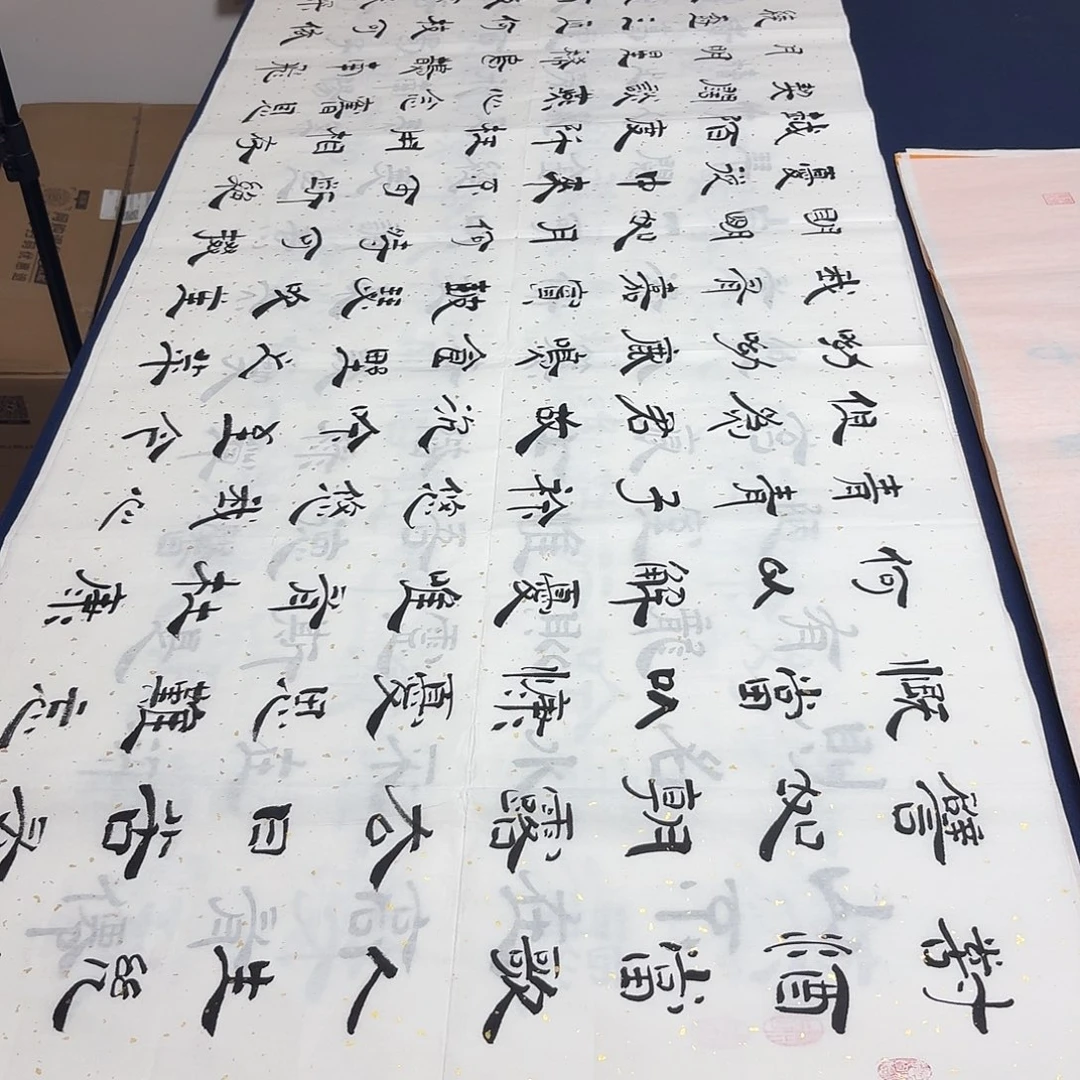 對酒當歌人生幾
譬如朝露去日苦多
慨當以慷憂思難忘
何以解憂唯有杜康
青青子衿悠悠我心
但為君故沉吟至今
呦呦鹿鳴食野之苹
我有嘉賓鼓瑟吹笙
明明如月何時可掇
憂從中來不可斷絕
越陌度阡枉用相存
契闊談讌心念舊恩
月明星稀烏鵲南飛
繞樹三匝何枝可依